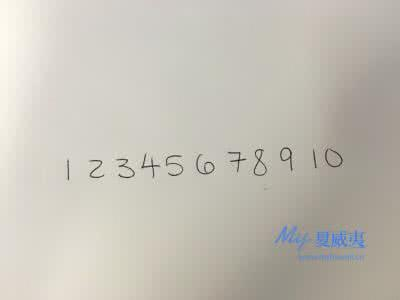 1 2 3 4 5 6 7 8 9 10
My 夏威夷